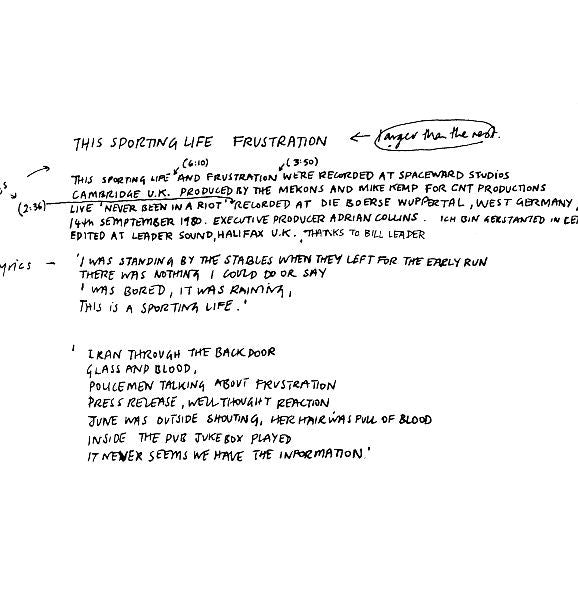 THIS SPORTING LIFE FRUSTRATION ← larger than the rest.
(6:10) (3:50)
THIS SPORTING LIFE' AND FRUSTRATION' WERE RECORDED AT SPACEWARD STUDIOS
CAMBRIDGE U.K. PRODUCED BY THE MEKONS AND MIKE KEMP FOR CNT PRODUCTIONS
(2:36)
LIVE 'NEVER BEEN IN A RIOT' RECORDED AT DIE BOERSE WUPPERTAL, WEST GERMANY,
14th SEMPTEMBER 1980. EXECUTIVE PRODUCER ADRIAN COLLINS. ICH BIN GERSTANTED IN
EDITED AT LEADER SOUND, HALIFAX U.K., THANKS TO BILL LEADER
yrics — 'I WAS STANDING BY THE STABLES WHEN THEY LEFT FOR THE EARLY RUN
THERE WAS NOTHING I COULD DO OR SAY
I WAS BORED, IT WAS RAINING,
THIS IS A SPORTING LIFE.'
' I RAN THROUGH THE BACK DOOR
GLASS AND BLOOD,
POLICEMEN TALKING ABOUT FRUSTRATION
PRESS RELEASE, WELL THOUGHT REACTION
JUNE WAS OUTSIDE SHOUTING, HER HAIR WAS FULL OF BLOOD
INSIDE THE PUB JUKEBOX PLAYED
IT NEVER SEEMS WE HAVE THE INFORMATION.'